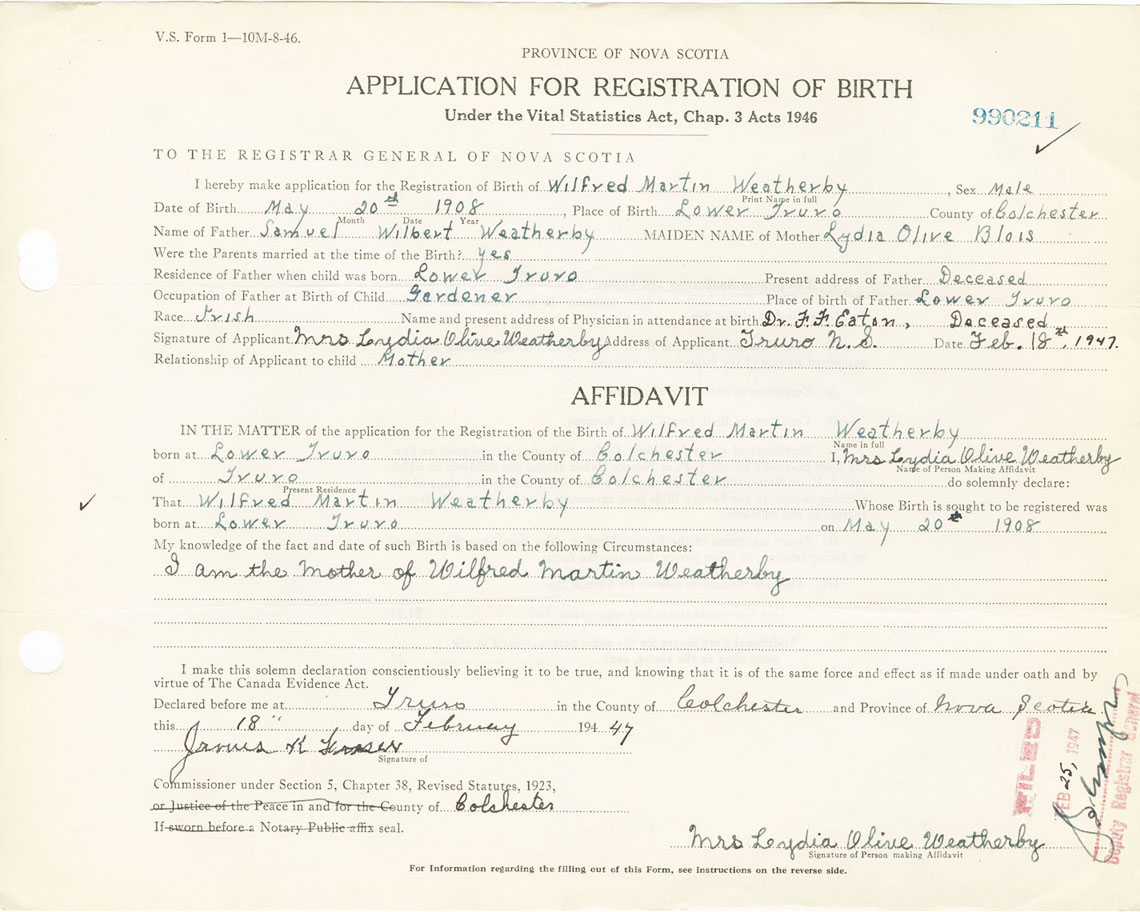 V.S. Form 1—10M-8-46.
PROVINCE OF NOVA SCOTIA
APPLICATION FOR REGISTRATION OF BIRTH
Under the Vital Statistics Act, Chap. 3 Acts 1946
990211
TO THE REGISTRAR GENERAL OF NOVA SCOTIA
I hereby make application for the Registration of Birth of Wilfred Martin Weatherby, Sex Male
Print Name in full
Date of Birth May 20th 1908, Place of Birth Lower Truro County of Colchester
Month Date Year
Name of Father Samuel Wilbert Weatherby MAIDEN NAME of Mother Lydia Olive Blois
Were the Parents married at the time of the Birth? yes
Residence of Father when child was born Lower Truro Present address of Father Deceased
Occupation of Father at Birth of Child Gardener Place of birth of Father Lower Truro
Race Irish Name and present address of Physician in attendance at birth Dr. F. F. Eaton, Deceased
Signature of Applicant Mrs Lydia Olive Weatherby Address of Applicant Truro N.S. Date Feb. 18th, 1947.
Relationship of Applicant to child Mother
AFFIDAVIT
IN THE MATTER of the application for the Registration of the Birth of Wilfred Martin Weatherby
Name in full
born at Lower Truro in the County of Colchester I, Mrs Lydia Olive Weatherby
Name of Person Making Affidavit
of Truro in the County of Colchester do solemnly declare:
Present Residence
That Wilfred Martin Weatherby Whose Birth is sought to be registered was
born at Lower Truro on May 20th 1908
My knowledge of the fact and date of such Birth is based on the following Circumstances:
I am the Mother of Wilfred Martin Weatherby
I make this solemn declaration conscientiously believing it to be true, and knowing that it is of the same force and effect as if made under oath and by
virtue of The Canada Evidence Act.
Declared before me at Truro in the County of Colchester and Province of Nova Scotia
this 18" day of February 194 47
K Fraser
Signature of
Commissioner under Section 5, Chapter 38, Revised Statutes, 1923,
or Justice of the Peace in and for the County of Colchester
If sworn before a Notary Public affix seal.
Mrs Lydia Olive Weatherby
Signature of Person making Affidavit
For Information regarding the filling out of this Form, see instructions on the reverse side.
FILED
FEB 25, 1947
Deputy Registrar General